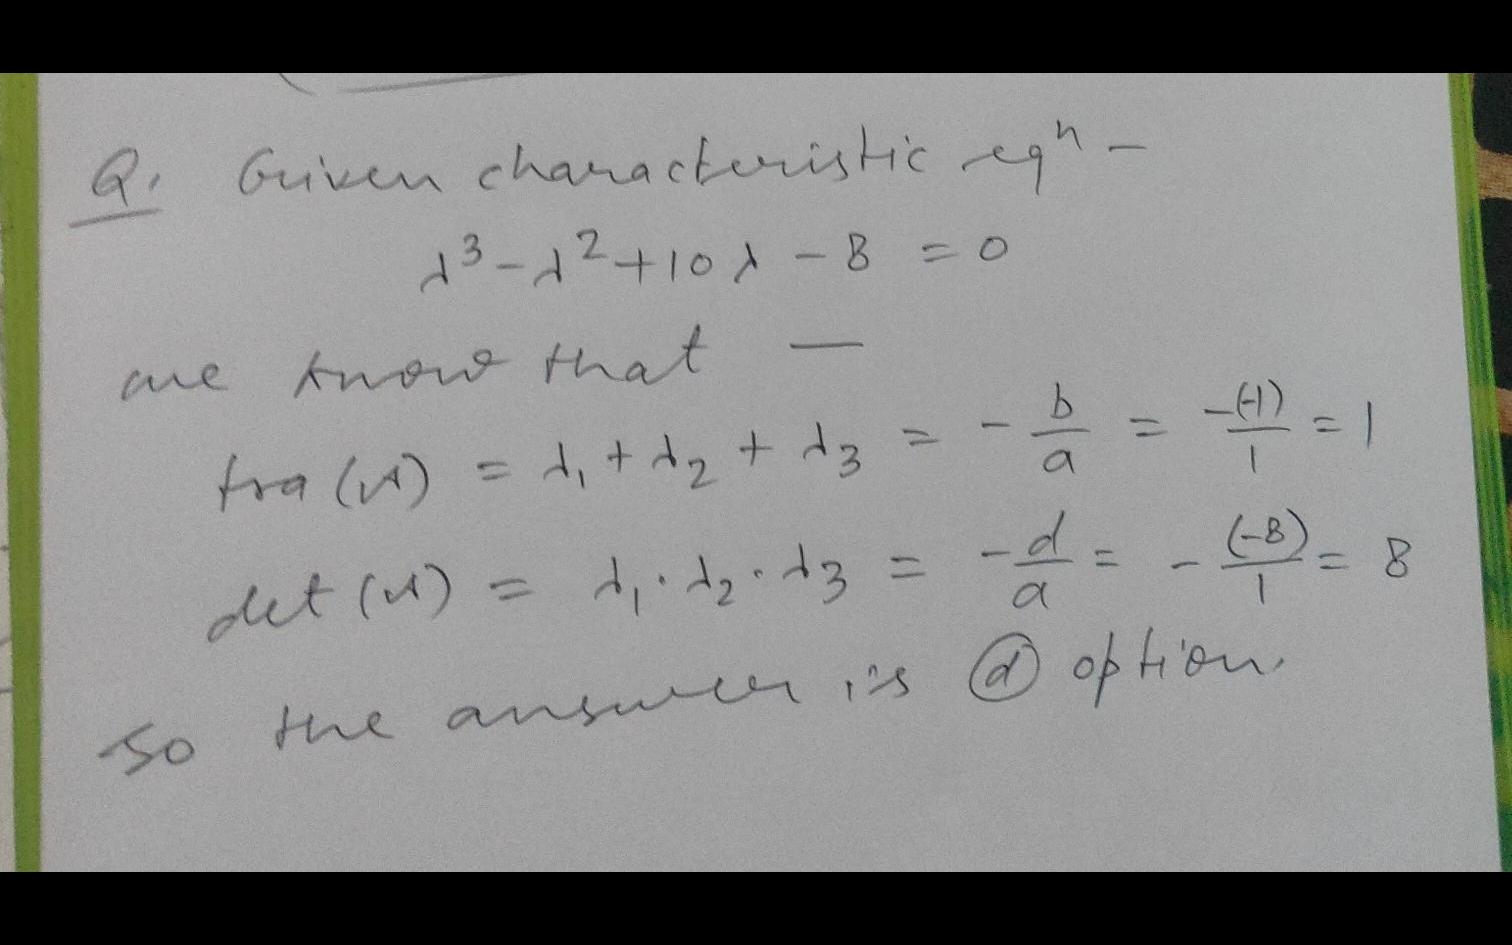 Q. Given characteristic eqⁿ -
λ³ - λ² + 10λ - 8 = 0
we know that —
tra(A) = λ₁ + λ₂ + λ₃ = - b/a = -(-1)/1 = 1
det(A) = λ₁ · λ₂ · λ₃ = - d/a = - (-8)/1 = 8
so the answer is ⓓ option.